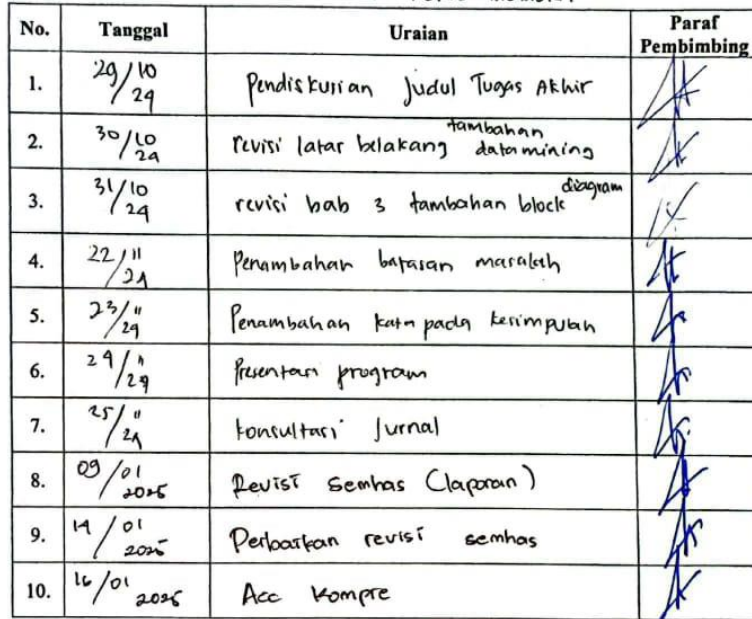 No. Tanggal Uraian Paraf Pembimbing
1. 29/10 24 Pendiskusian Judul Tugas Akhir
2. 30/10 24 revisi latar belakang tambahan data mining
3. 31/10 24 revisi bab 3 tambahan block diagram
4. 22/11 24 Penambahan batasan masalah
5. 23/11 24 Penambahan kata pada kesimpulan
6. 24/11 24 Presentasi program
7. 25/11 24 konsultasi Jurnal
8. 09/01 2025 Revisi semhas (laporan)
9. 14/01 2025 Perbaikan revisi semhas
10. 16/01 2025 Acc Kompre